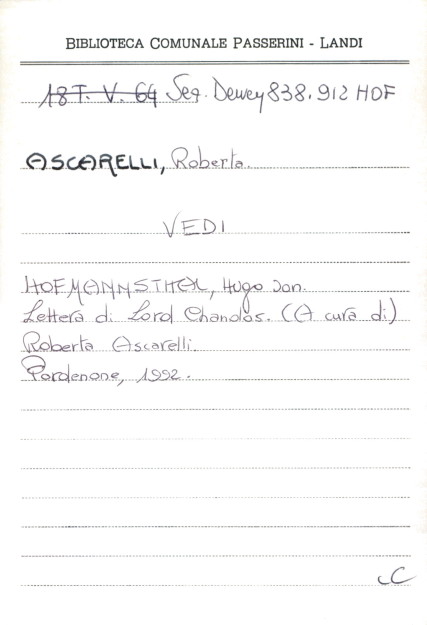 BIBLIOTECA COMUNALE PASSERINI - LANDI
18 T. V. 64 Seg. Dewey 838.912 HOF
ASCARELLI, Roberta.
VEDI
HOFMANNSTHAL, Hugo von.
Lettera di Lord Chandos. (A cura di)
Roberta Ascarelli.
Pordenone, 1992.
C